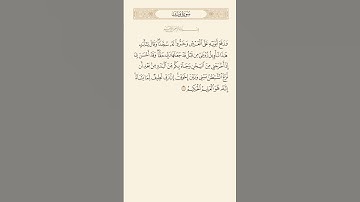 سورة يوسف
وَرَفَعَ أَبَوَيْهِ عَلَى ٱلْعَرْشِ وَخَرُّوا۟ لَهُۥ سُجَّدًا ۖ وَقَالَ يَـٰٓأَبَتِ
هَـٰذَا تَأْوِيلُ رُءْيَـٰىَ مِن قَبْلُ قَدْ جَعَلَهَا رَبِّى حَقًّا ۖ وَقَدْ أَحْسَنَ بِىٓ
إِذْ أَخْرَجَنِى مِنَ ٱلسِّجْنِ وَجَآءَ بِكُم مِّنَ ٱلْبَدْوِ مِنۢ بَعْدِ أَن
نَّزَغَ ٱلشَّيْطَـٰنُ بَيْنِى وَبَيْنَ إِخْوَتِىٓ ۚ إِنَّ رَبِّى لَطِيفٌ لِّمَا يَشَآءُ ۚ
إِنَّهُۥ هُوَ ٱلْعَلِيمُ ٱلْحَكِيمُ